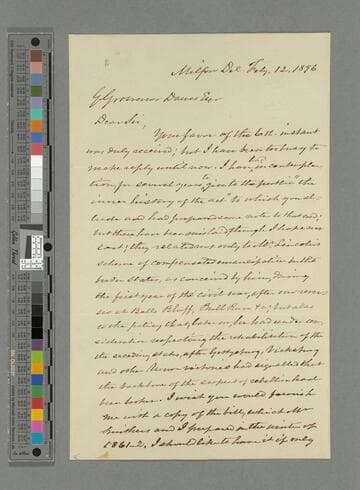 Milford Del. Feby. 12. 1896
G Grosvenor Dawes Esqr
Dear Sir,
Your favor of the 6th instant
was duly received; but I have been too busy to
make reply until now. I have had in contempla-
tion for several years to "give to the public" the
inner history of the act to which you al-
lude and had prepared some note to that end;
but these have been mislaid though I hope not
lost; they related not only to Mr Lincoln's
scheme of compensated emancipation in the
border states, as conceived by him, during
the first year of the civil war, after our rever-
ses at Balls Bluff, Bull Run &c; but also
as the policy that later on, he had under con-
sideration respecting the rehabilitation of the
the seceding states, after Gettysburg, Vicksburg
and other Union victories had signalled that
the backbone of the serpent of rebellion had
been broken. I wish you would furnish
me with a copy of the bill, which Mr
and I prepared in the winter of
1861-2. I should like to have it if only